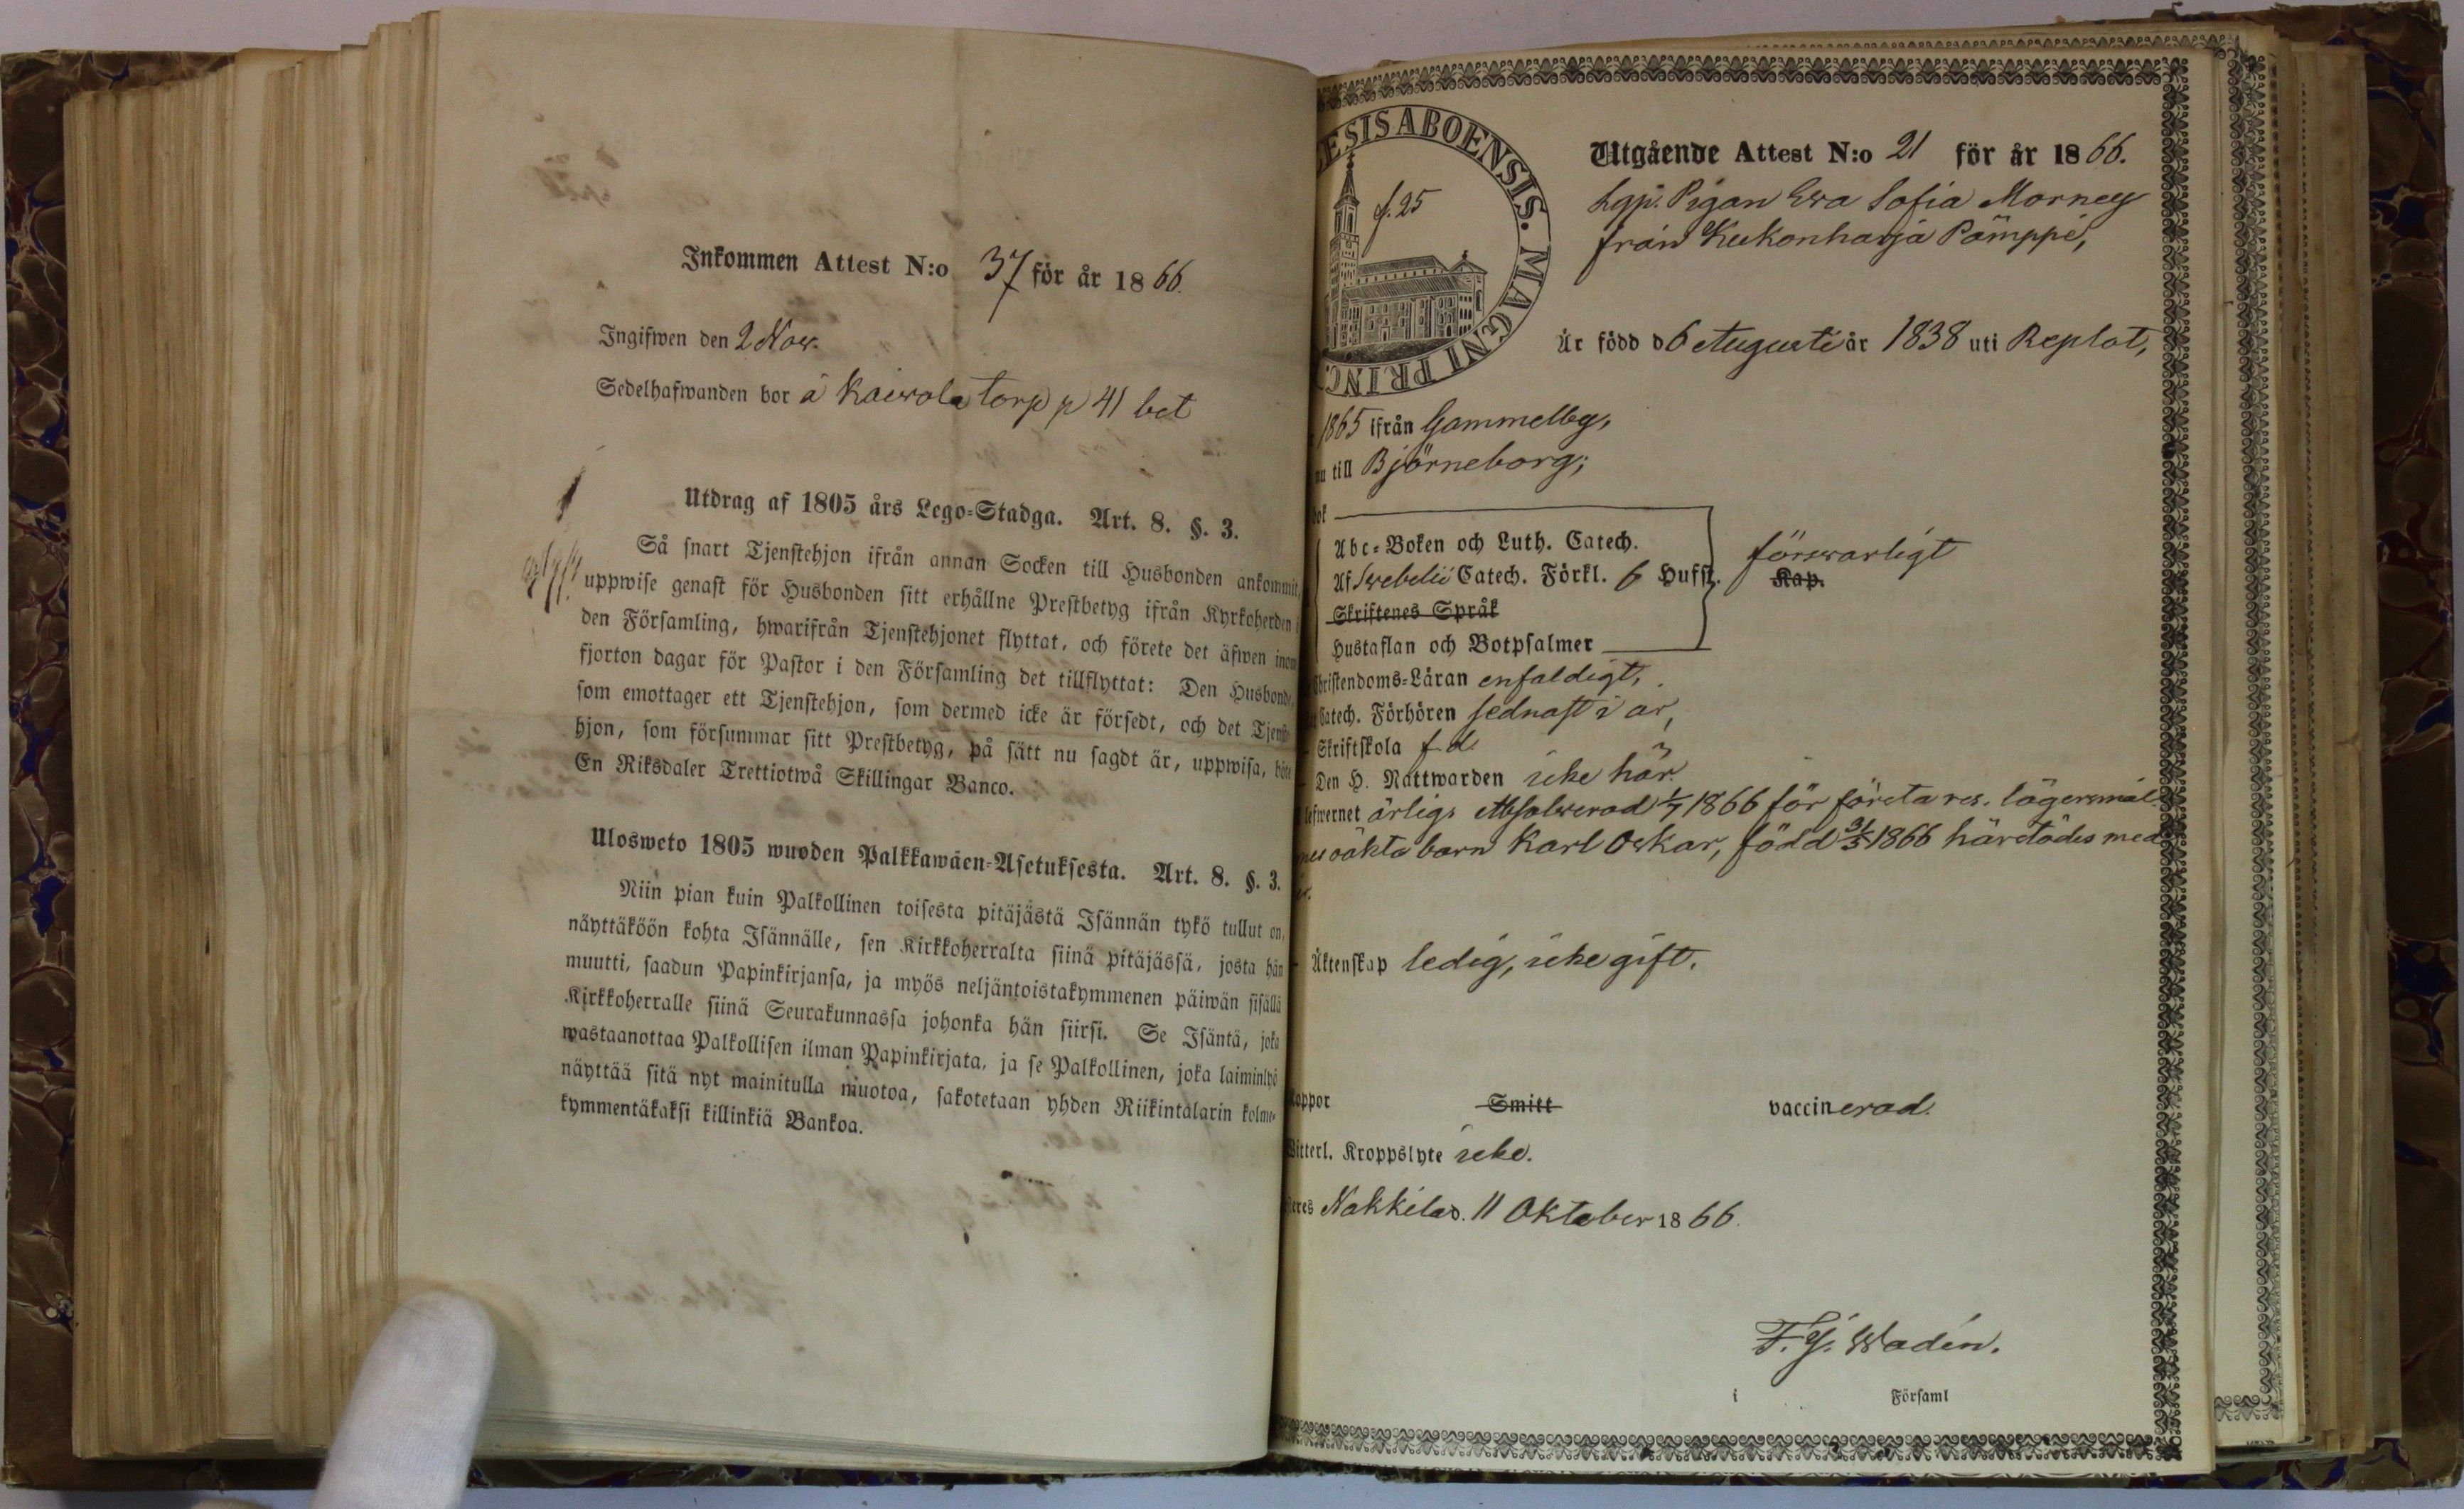 Inkommen Attest N:o 37 för år 1866.
Ingifwen den 2 Nov.
Sedelhafwanden bor å Kaiwola torp p 41 bet
Utdrag af 1805 års Lego-Stadga. Art. 8. §. 3.
Så snart Tjenstehjon ifrån annan Socken till Husbonden ankommit,
uppwise genast för Husbonden sitt erhållne Prestbetyg ifrån Kyrkoherden i
den Församling, hwarifrån Tjenstehjonet flyttat, och förete det äfwen inom
fjorton dagar för Pastor i den Församling det tillflyttat: Den Husbonde,
som emottager ett Tjenstehjon, som dermed icke är försedt, och det Tjenste-
hjon, som försummar sitt Prestbetyg, på sätt nu sagdt är, uppwisa, böte
En Riksdaler Trettiotwå Skillingar Banco.
Ulosweto 1805 wuoden Palkkawäen-Asetuksesta. Art. 8. §. 3.
Niin pian kuin Palkollinen toisesta pitäjästä Isännän tykö tullut on,
näyttäköön kohta Isännälle, sen Kirkkoherralta siinä pitäjässä, josta hän
muutti, saadun Papinkirjansa, ja myös neljäntoistakymmenen päiwän sisällä
Kirkkoherralle siinä Seurakunnassa johonka hän siirsi. Se Isäntä, joka
wastaanottaa Palkollisen ilman Papinkirjata, ja se Palkollinen, joka laiminlyö
näyttää sitä nyt mainitulla muotoa, sakotetaan yhden Riikintalarin kolme-
kymmentäkaksi killinkiä Bankoa.
ESIS ABOENSIS. MAGNI PRINC.
f. 25
Utgående Attest N:o 21 för år 1866.
Pigan Ewa Sofia Morney
från Kukonharja Pämppi,
Är född d 6 Augusti år 1838 uti Replot,
1865 ifrån Gammelby,
nu till Björneborg;
bok
Abc-Boken och Luth. Catech.
Af Swebelii Catech. Förkl. 6 Hufst. förswarligt
Kap.
Skriftenes Språk
Hustaflan och Botpsalmer
Christendoms-Läran enfaldigt,
Catech. Förhören sednast i år,
Skriftskola f. d.
Den H. Nattwarden icke här.
lefwernet ärlig. Absolverad 1/7 1866 för första res. lägersmål.
oäkta barn Karl Oskar, född 31/5 1866 härstädes med
Äktenskap ledig, icke gift.
Koppor Smitt vaccinerad.
Witterl. Kroppslyte icke.
Nakkila d. 11 Oktober 1866.
F. J. Wadén.
i Församl